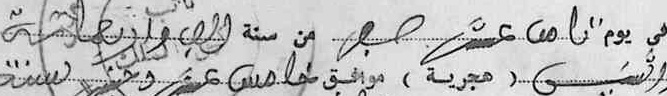 في يوم ثامن عشر صفر من سنة الف واربعمائة
واثنين (هجرية) موافق خامس عشر دجنبر سنة